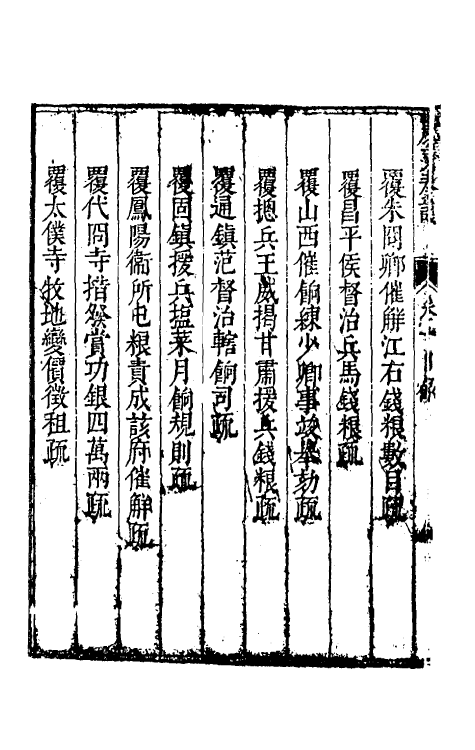 覆朱冏卿催解江右錢粮數目疏
覆昌平侯督治兵馬錢粮疏
覆山西催餉練少卿事竣舉劾疏
覆摠兵王威揭甘肅援兵錢粮疏
覆通鎮范督治轄餉司疏
覆固鎮援兵塩菜月餉規則疏
覆鳳陽衞所屯粮責成該府催解疏
覆代冏寺揩發賞功銀四萬兩疏
覆太僕寺牧地變價徵租疏